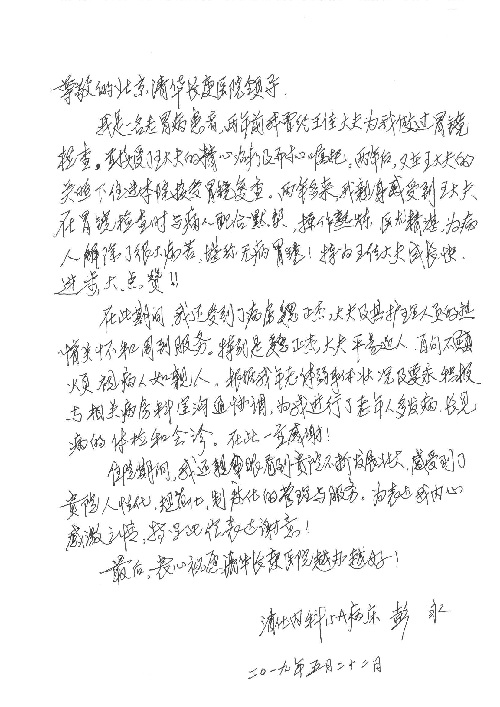 尊敬的北京清华长庚医院领导:
我是一名老胃病患者,两年前我曾经王佳大夫为我做过胃镜
检查。并接受了王大夫的精心治疗及开心 两年后,又在王大夫的
关照下住进本院接受胃镜复查。两年多来,我亲身感受到王大夫
在胃镜检查时与病人配合默契,操作熟练,医术精湛,为病
人解除了很大病苦,堪称无痛胃镜!特为王佳大夫成长快、
进步大点赞!!
在此期间,我还受到了病房魏正杰大夫及其护理人员的热
情关怀和周到服务。特别是魏正杰大夫平易近人,百问不厌
烦,视病人如亲人。根据我年老体弱的状况及要求积极
与相关病房科室沟通协调,为我进行了老年人多发病、常见
病的体检和会诊。在此一并感谢!
住院期间,我还亲眼看到贵院不断发展壮大,感受到了
贵院人性化、规范化、制度化的管理与服务。为表达我内心
感激之情,特呈此信表达谢意!
最后,衷心祝愿清华长庚医院越办越好!
消化内科15A病床 彭永
二〇一九年五月二十二日